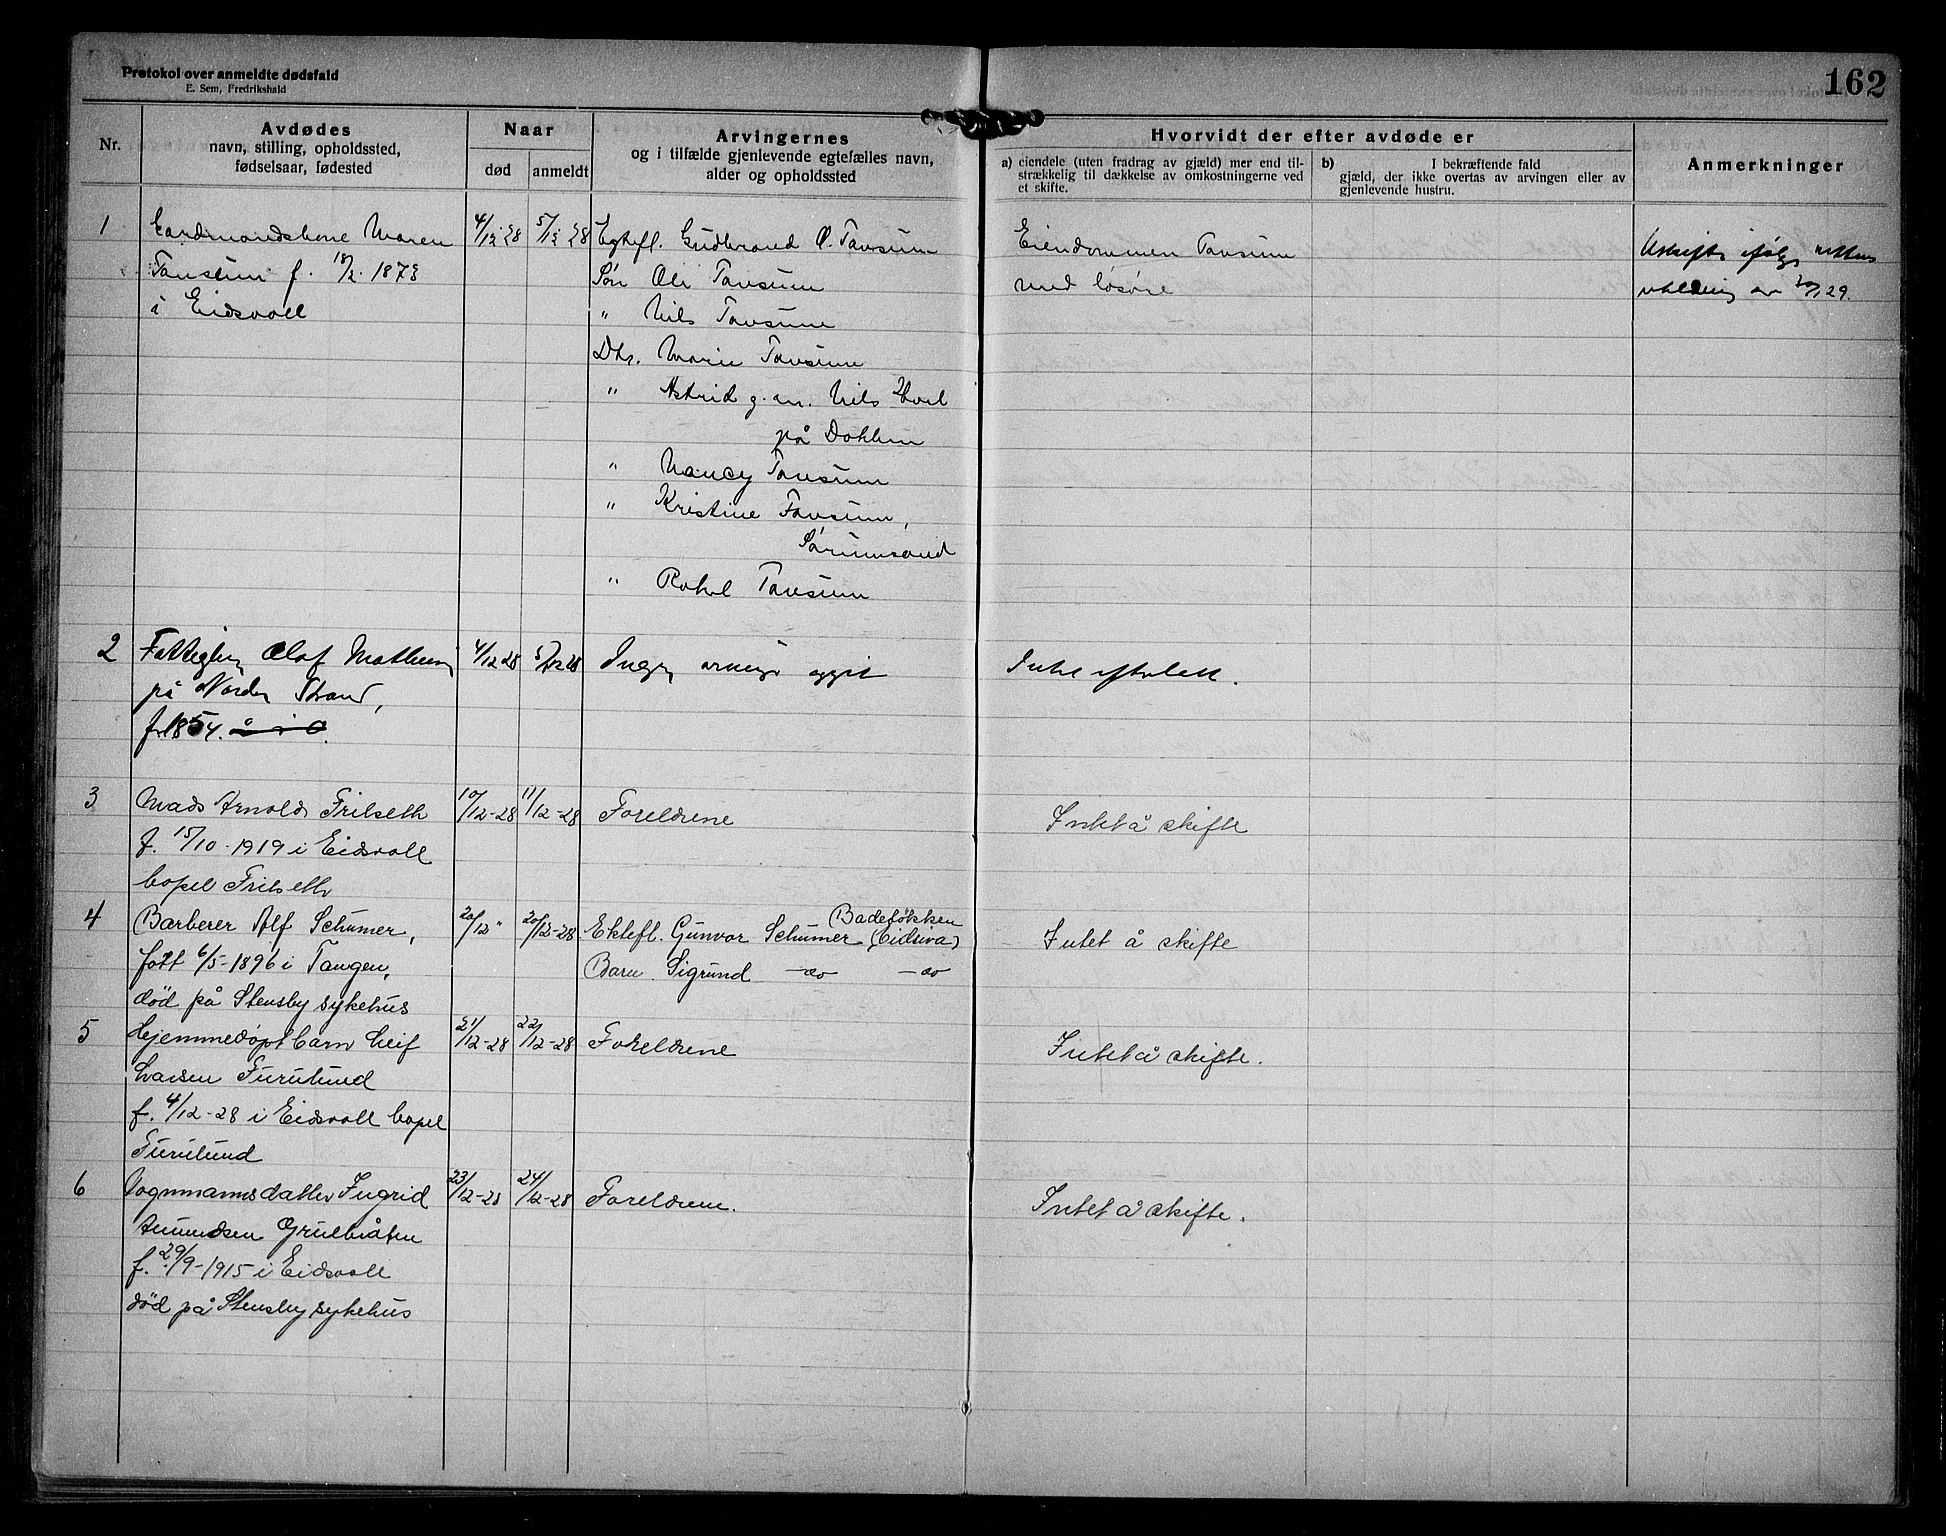 Protokol over anmeldte dødsfald
E. Sem, Fredrikshald
162
Nr.
Avdødes
navn, stilling, opholdssted,
fødselsaar, fødested
Naar
død
anmeldt
Arvingernes
og i tilfælde gjenlevende egtefælles navn,
alder og opholdssted
Hvorvidt der efter avdøde er
a) eiendele (uten fradrag av gjæld) mer end til-
strækkelig til dækkelse av omkostningerne ved
et skifte.
b) I bekræftende fald
gjæld, der ikke overtas av arvingen eller av
gjenlevende hustru.
Anmerkninger
1
Gardmandskone Maren
Tansum f. 18/2 1873
i Eidsvoll
4/12 28
5/12 28
Egtefl. Gudbrand O. Tansum
Søn Ole Tansum
" Nils Tansum
Dtr. Marie Tansum
" Astrid g. m. Nils
på Dokken
" Nancy Tansum
" Kristine Tansum,
Sørumsand
" Rakel Tansum
Eiendommen Tansum
med løsøre
Utskiftes ifølge rettens
av 29.
2
Fattiglem Olaf Mathesen
på Nordre Strand,
f. 1854.
4/12 28
5/12 28
Ingen arvinger opgit
Intet efterlatt.
3
Mads Arnolds Frilseth
f. 15/10-1919 i Eidsvoll
bopel Frilseth
10/12-28
11/12-28
Foreldrene
Intet å skifte
4
Barberer Alf Schumer,
født 6/5-1896 i Tangen,
død på Stensby sykehus
20/12 "
20/12-28
Badebakken
Ektefl. Gunvor Schumer (Eidsiva)
Barn Sigrund —do— —do
Intet å skifte
5
Hjemmedøpt barn Leif
Larsen Furulund
f. 4/12-28 i Eidsvoll bopel
Furulund
21/12-28
22/12-28
Foreldrene
Intet å skifte.
6
Vognmannsdatter Ingrid
Amundsen Grulbråten
f. 29/9-1915 i Eidsvoll
død på Stensby sykehus
23/12-28
24/12-28
Foreldrene.
Intet å skifte.